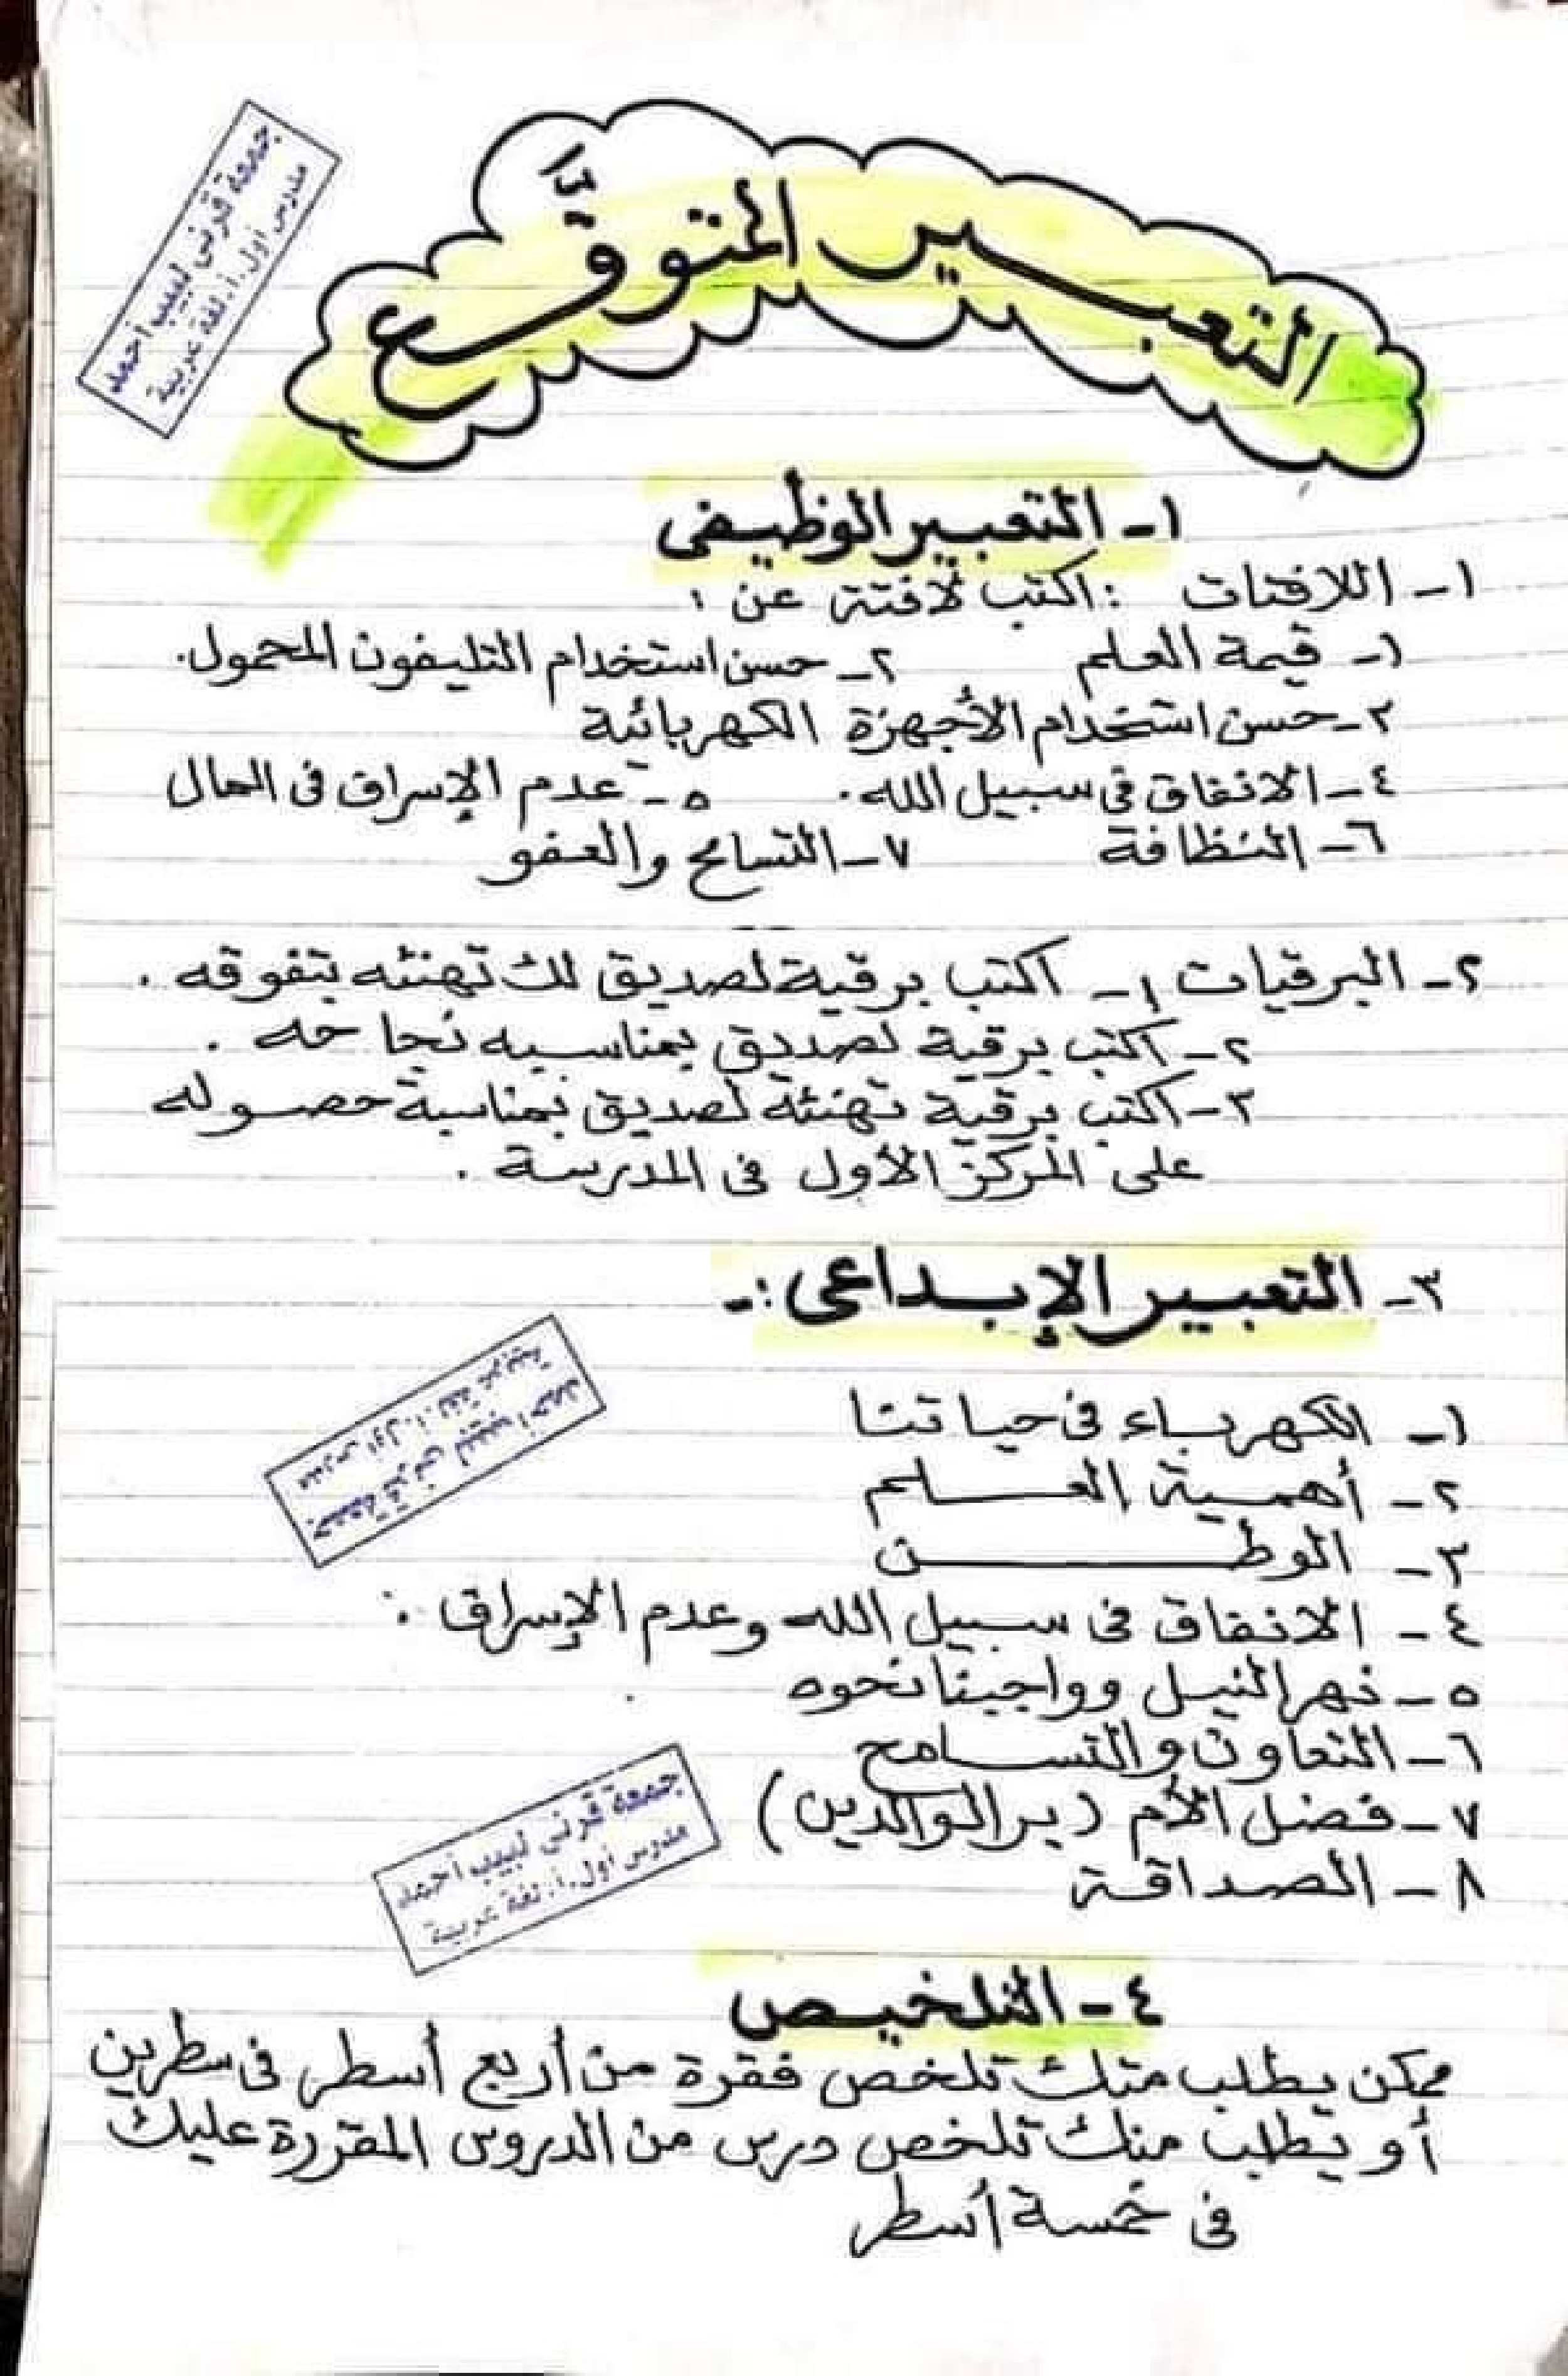 التعبير المتوقَّع
جمعة قرنى لبيب أحمد
مدرس أول.أ. لغة عربية
١- التعبير الوظيفى
١- اللافتات : اكتب لافتة عن :
١- قيمة العلم ٢- حسن استخدام التليفون المحمول.
٣- حسن استخدام الأجهزة الكهربائية
٤- الانفاق فى سبيل الله. ٥- عدم الإسراق فى المال
٦- النظافة ٧- التسامح والعفو
٢- البرقيات ١- اكتب برقية لصديق لك تهنئه بتفوقه .
٢- اكتب برقية لصديق بمناسبه نجاحه .
٣- اكتب برقية تهنئة لصديق بمناسبة حصوله
على المركز الأول فى المدرسة .
٣- التعبير الإبداعى :-
جمعة قرنى لبيب أحمد
مدرس أول.أ. لغة عربية
١- الكهرباء فى حياتنا
٢- أهمية العلم
٣- الوطن
٤- الانفاق فى سبيل الله وعدم الإسراق :
٥- نهر النيل وواجبنا نحوه
٦- التعاون والتسامح
٧- فضل الأم (بر الوالدين)
٨- الصداقة
جمعة قرنى لبيب أحمد
مدرس أول.أ. لغة عربية
٤- التلخيص
ممكن يطلب منك تلخص فقرة من أربع أسطر فى سطرين
أو يطلب منك تلخص درس من الدروس المقررة عليك
فى خمسة أسطر